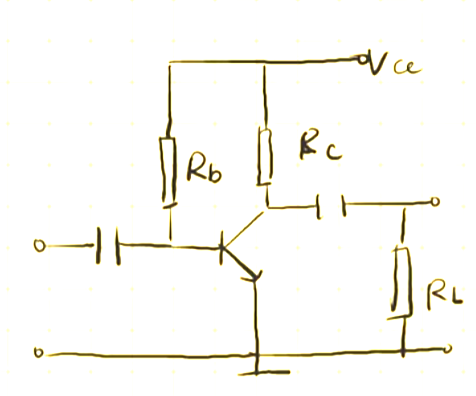 Vcc
Rb
Rc
RL